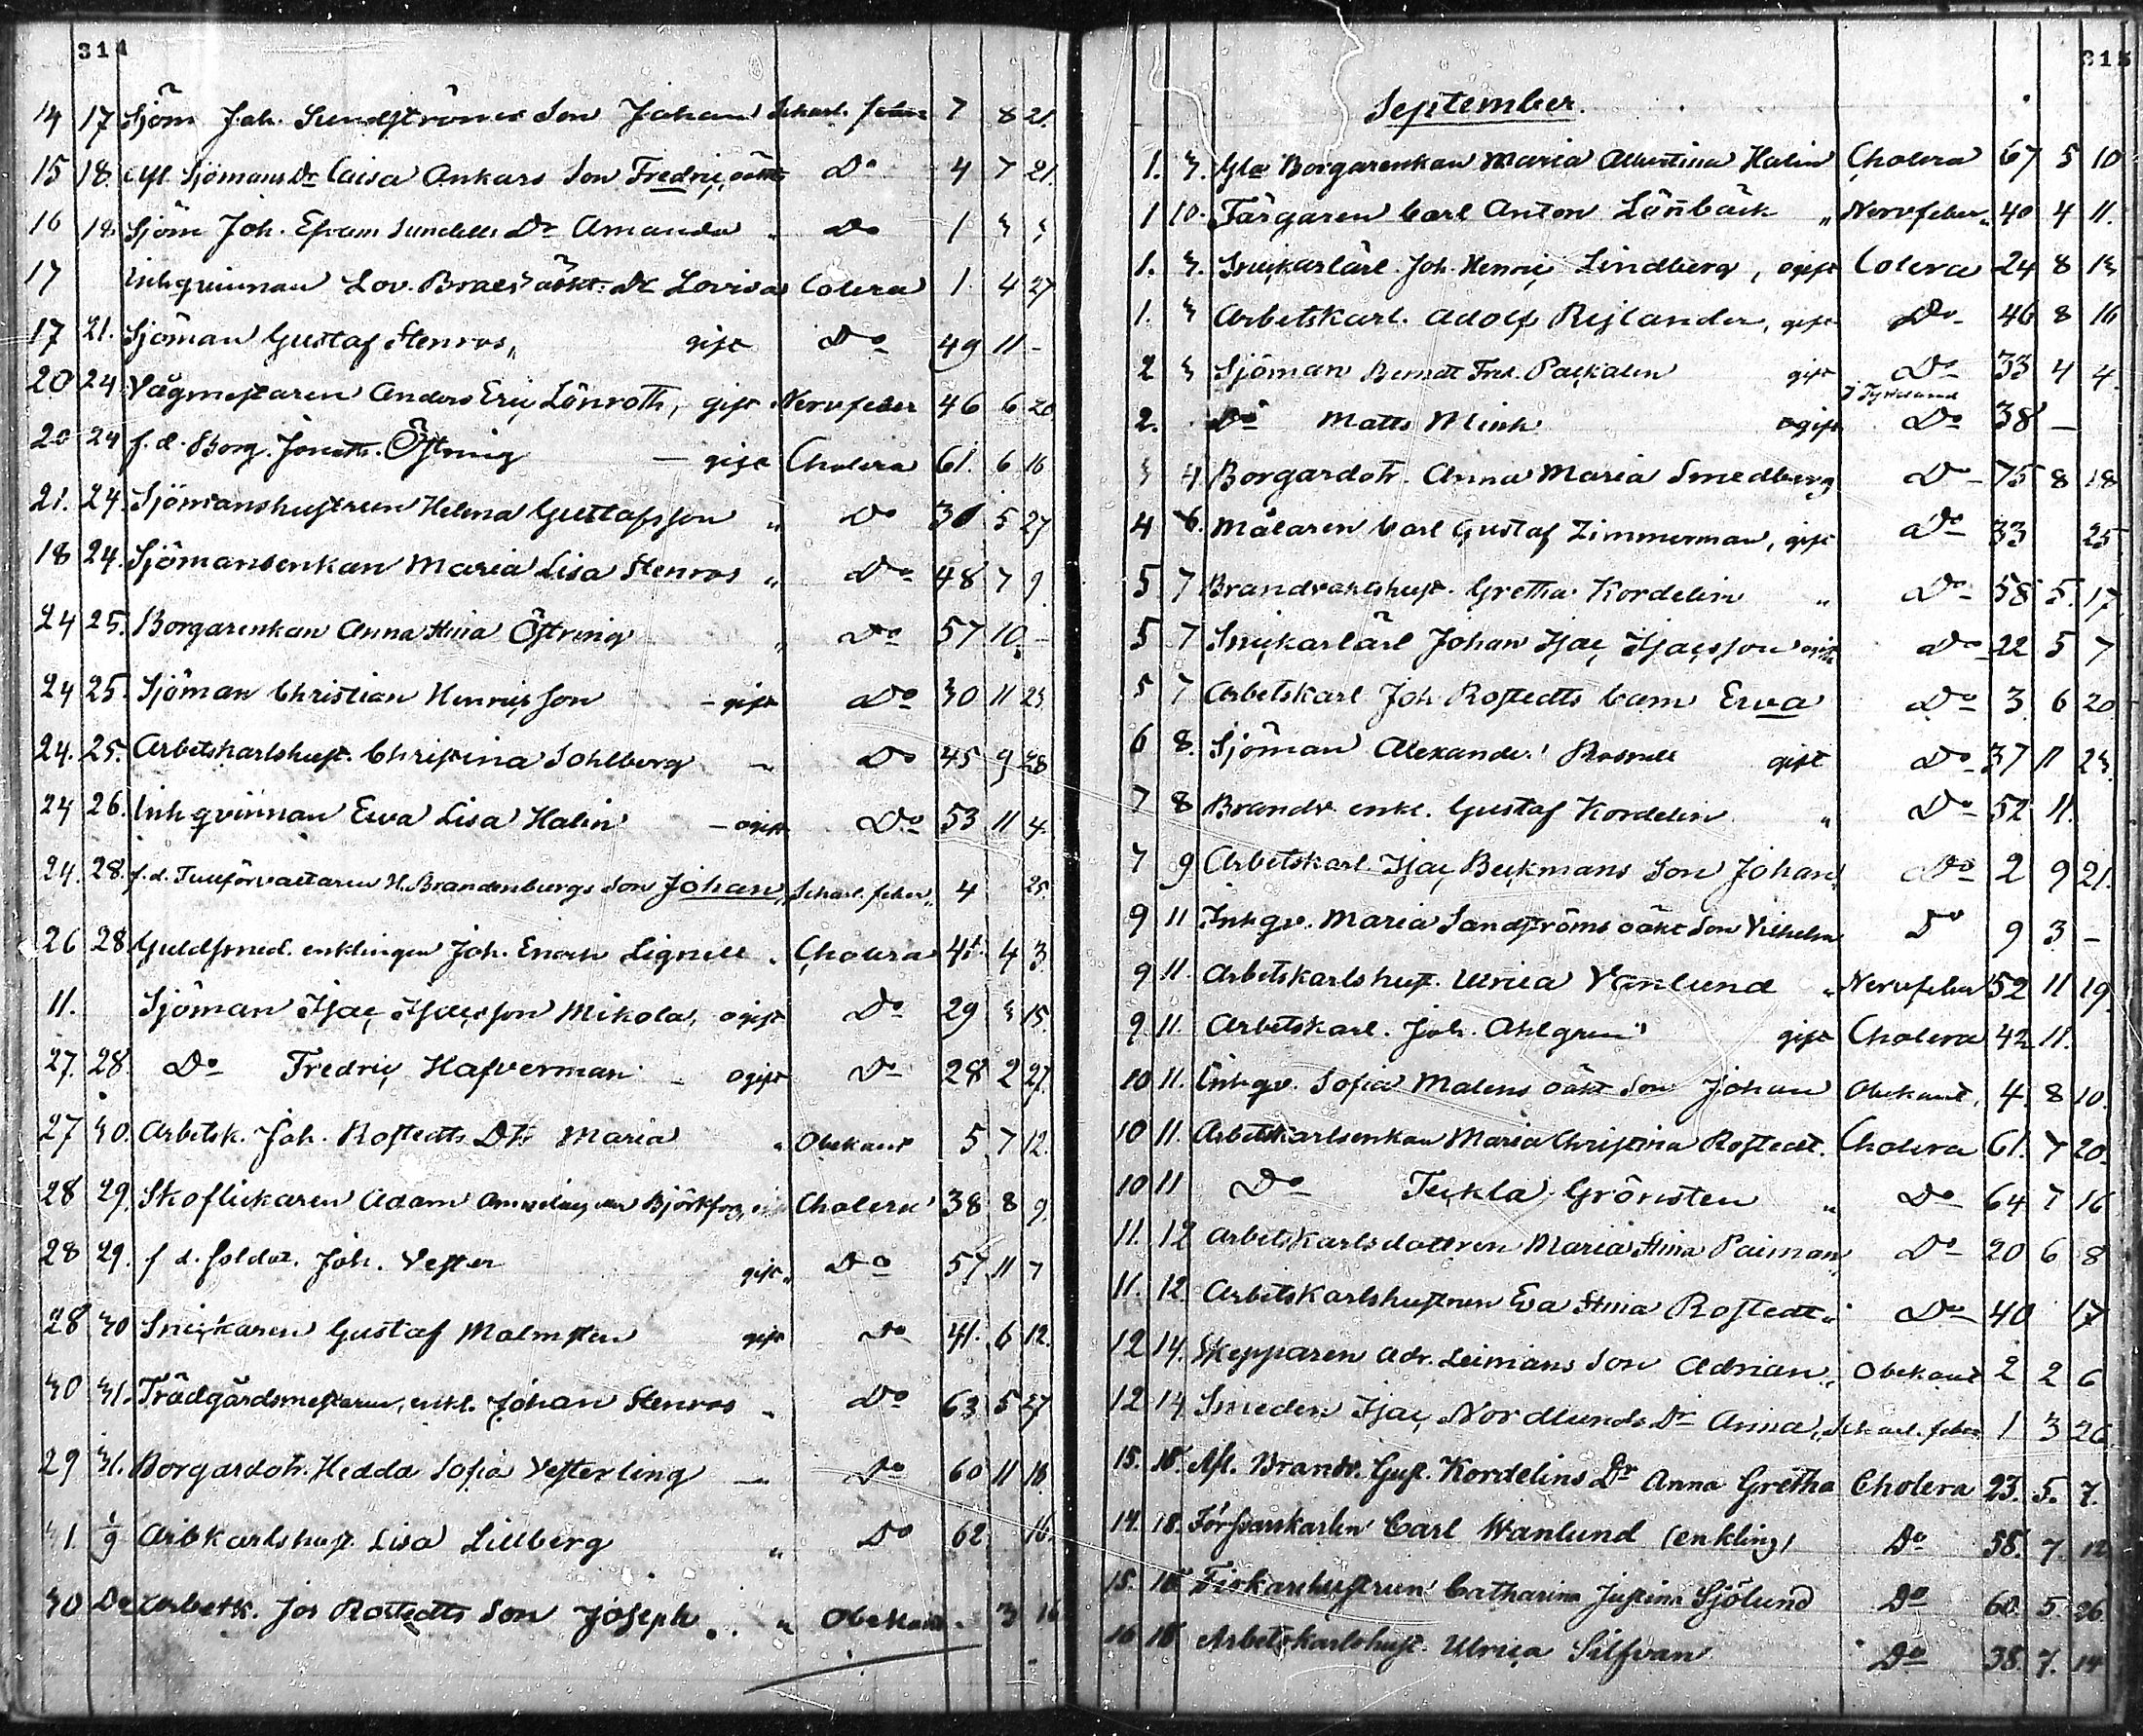 314
14 17 Sjöm Joh. Sundströms Son Johan Scharl. feber 7 8 21.
15 18. afl. Sjömans Dr Caisa Ankars Son Fredric, oäkta Do 4 7 21.
16 18 Sjöm Joh. Efraim Sundells Dr Amanda " Do 1 3 3
17 Inhqvinnan Lov. Braes oäkt. Dr Lovisa Colera 1. 4 27
17 21. Sjöman Gustaf Stenros, gift Do 49 11 -
20 24 Vågmestaren Anders Eric Lönroth, gift Nervfeber 46 6 20
20 24 f. d. Borg. Jonath. Östring - gift Cholera 61. 6 16
21. 24. Sjömanshustrun Helena Gustafsson " Do 30 5 27
18 24. Sjömansenkan Maria Lisa Stenros " Do 48 7 9
24 25. Borgarenkan Anna Stina Östring " Do 57 10. -
24 25. Sjöman Christian Henricsson - gift Do 30 11 23
24. 25. Arbetskarlshust. Christina Sohlberg " Do 45 9 28
24 26. Inhqvinnan Ewa Lisa Halin - ogift Do 53 11 4.
24. 28. f. d. Tullförvaltaren H. Brandenburgs Son Johan, Scharl. feber 4 25.
26 28 Guldsmed. enklingen Joh. Enoch Lignell . Cholera 41. 4 3.
11. Sjöman Isac Isacsson Mikola, ogift Do 29 3 15.
27. 28. Do Fredric Hafverman - ogift Do 28 2 27.
27 30. Arbetsk. Joh. Rostedts Dtr Maria " Obekant 5 7 12.
28 29. Skoflickaren Adam Björkfors, Cholera 38 8 9.
28 29. f d. soldat. Joh. Vester gift " Do 57 11 7
28 30 Snickaren Gustaf Malmsten gift Do 41. 6 12.
30 31. Trädgårdsmestaren, enkl. Johan Stenros " Do 63 5 27
29 31. Borgardotr. Hedda Sofia Vesterling - Do 60 11 18
31. 1/9 Arbkarlshust. Lisa Lillberg " Do 62 16.
30 Do Arbetk. Jos Rostedts Son Joseph. . " Obekant - 3 16
315
September.
1. 3. Gla Borgarenkan Maria Albertina Halin Cholera 67 5 10
1 10. Färgaren Carl Anton Lönbäck " Nervfeber 40 4 11.
1. 3. Snickarlärl. Joh. Henric Lindberg, ogift Colera 24 8 13
1. 3 Arbetskarl. Adolf Rejlander, gift Do 46 8 16
2 3 Sjöman Berndt Fred. Packalen gift Do 33 4 4.
i Tyskland
2. Do Matts Mink ogift Do 38 -
3 4 Borgardotr. Anna Maria Smedberg Do 75 8 18
4 6. Målaren Carl Gustaf Zimmerman, gift Do 33 25
5 7 Brandvaktshust. Gretha Kordelin " Do 58 5. 17.
5 7 Snickarlärl Johan Isac Isacsson ogift Do 22 5 7
5 7 Arbetskarl Joh Rostedts barn Erva Do 3 6 20
6 8. Sjöman Alexander Rosnell gift Do 37 11 23.
7 8 Brandv. enkl. Gustaf Kordelin " Do 52 11.
7 9 Arbetskarl. Isac Beckmans Son Johan Do 2 9 21.
9 11 Inhqv. Maria Sandströms oäkt Son Vilhelm Do 9 3 -
9 11. Arbetskarlshust. Ulrica Vanlund " Nervfeber 52 11 19.
9. 11. Arbetskarl. Joh. Ahlgren gift Cholera 42 11.
10 11. Inhqv. Sofia Malens oäkt Son Johan Obekant, 4. 8 10.
10 11. Arbetskarlsenkan Maria Christina Rostedt. Cholera 61. 7 20.
10 11 Do Teckla Grönsten " Do 64 7 16
11. 12 Arbetskarlsdottren Maria Stina Paiman, Do 20 6 8
11. 12 Arbetskarlshustrun Eva Stina Rostedt " Do 40 17
12 14. Skepparen Adr. Leimans Son Adrian " Obekant 2 2 6
12 14. Smeden Isac Nordlunds Dr Anna, Scharl. feber 1 3 26.
15. 18. Afl. Brandv. Gust. Kordelins Dr Anna Gretha Cholera 23. 5. 7.
14. 18. Försvarskarlen Carl Wanlund (enkling) Do 58. 7. 12
15. 18 Fiskarehustrun Catharina Justina Sjölund Do 60. 5. 26.
16 18 Arbetskarlshust. Ulrica Silfvan Do 38. 7. 14